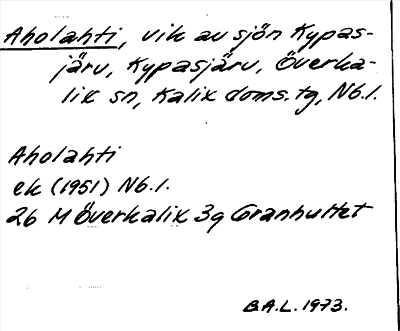 Aholahti, vik av sjön Kypas-
järv, Kypasjärv, Överka-
lix sn, Kalix doms.tg, Nb.l.
Aholahti
ek (1951) Nb.l.
26 M Överkalix 3g Granhultet
B.A.L. 1973.